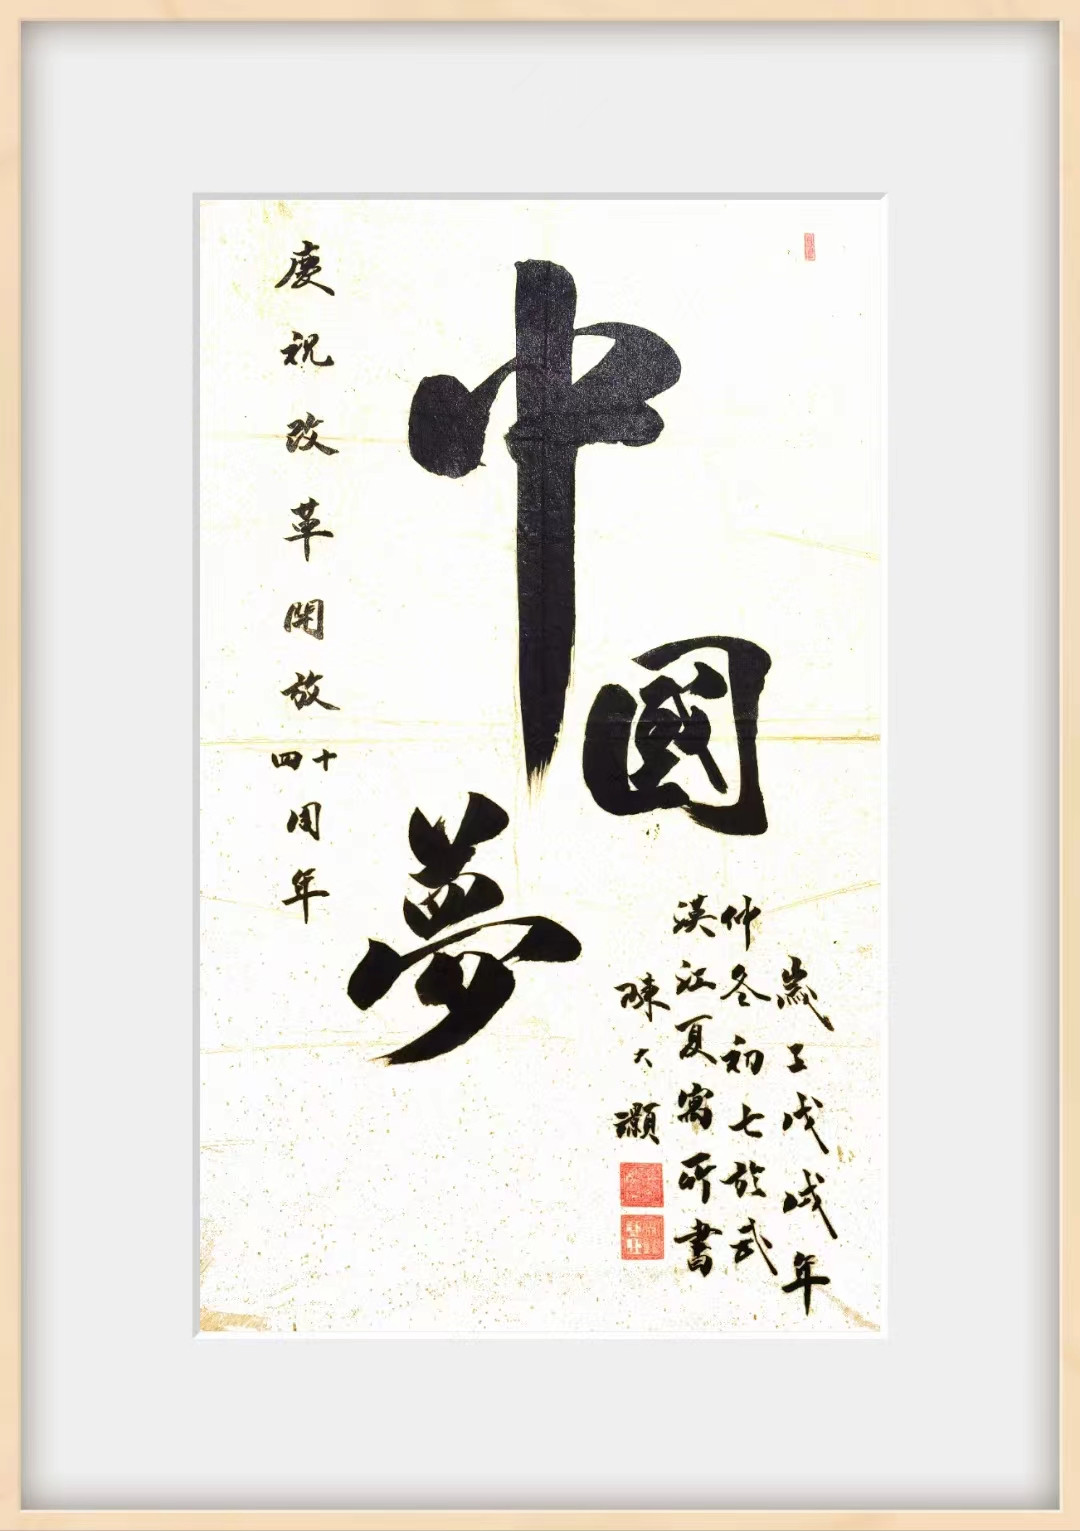 中國夢
慶祝改革開放四十周年
歲工戊戌年
仲冬初七於武
漢江夏寓所書
陳大灝